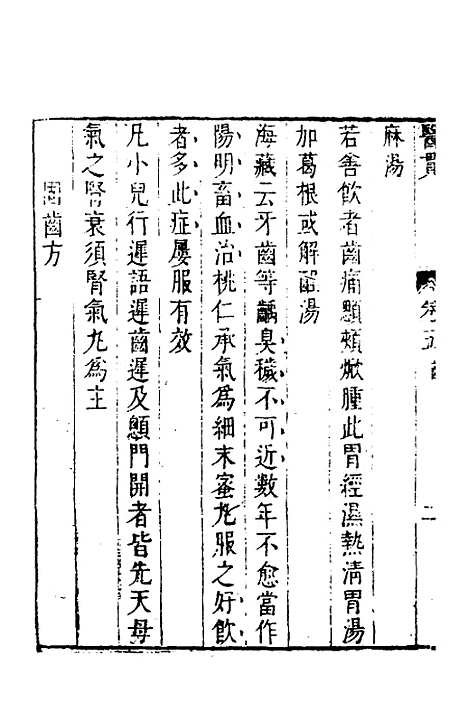 醫貫 卷五 二
麻湯
若善飲者齒痛顋頰焮腫此胃經濕熱清胃湯
加葛根或解酲湯
海藏云牙齒等齲臭穢不可近數年不愈當作
陽明畜血治桃仁承氣為細末蜜丸服之好飲
者多此症屢服有效
凡小兒行遲語遲齒遲及顖門開者皆先天母
氣之腎衰須腎氣丸為主
固齒方